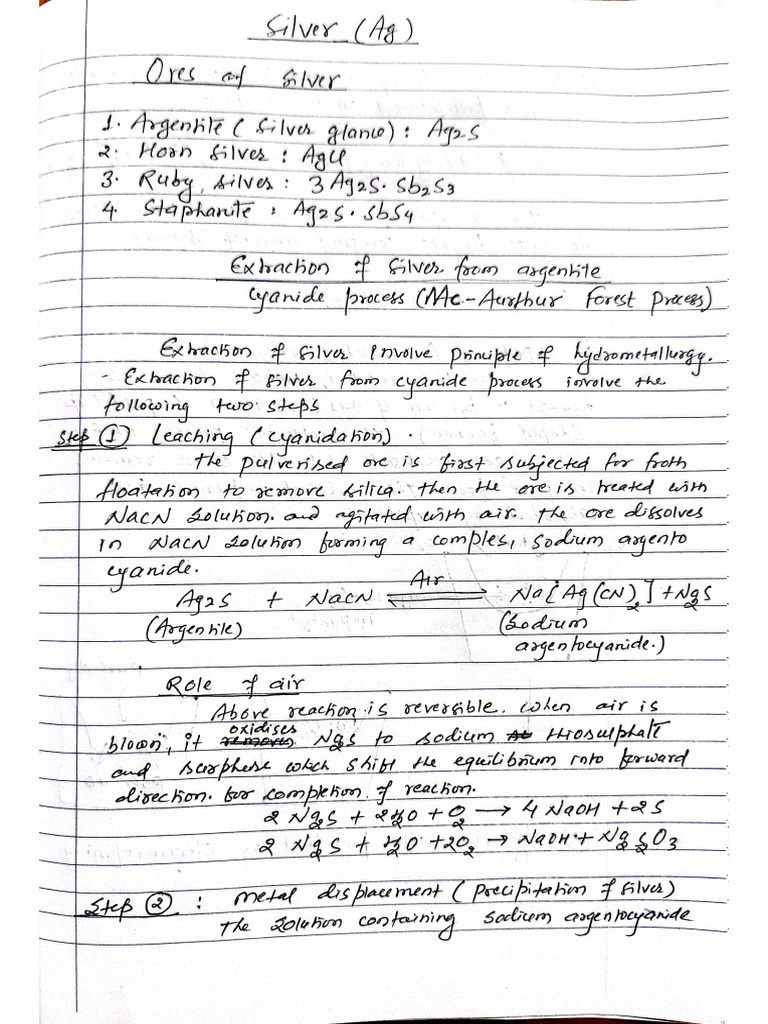 Silver (Ag)
Ores of silver
1. Argentite (silver glance) : Ag2S
2. Horn silver : AgCl
3. Ruby silver : 3 Ag2S. Sb2S3
4. Staphanite : Ag2S. SbS4
Extraction of silver from argentite
cyanide process (Mc-Aurthur Forest process)
Extraction of silver involve principle of hydrometallurgy.
- Extraction of silver from cyanide process involve the
following two steps
Step ① Leaching (cyanidation).
The pulverised ore is first subjected for froth
floatation to remove silica. then the ore is treated with
NaCN solution. and agitated with air. the ore dissolves
in NaCN solution forming a comples, sodium argento
cyanide.
Ag2S + NaCN ⇌ Air Na[Ag(CN)2] + Na2S
(Argentite) (sodium
argentocyanide.)
Role of air
Above reaction is reversible. when air is
blown, it oxidises Na2S to sodium thiosulphate
and which shift the equilibrium into forward
direction. for completion of reaction.
2 Na2S + 2H2O + O2 → 4 NaOH + 2S
2 Na2S + H2O + 2O2 → NaOH + Na2S2O3
Step ② : metal displacement (precipitation of silver)
the solution containing sodium argentocyanide